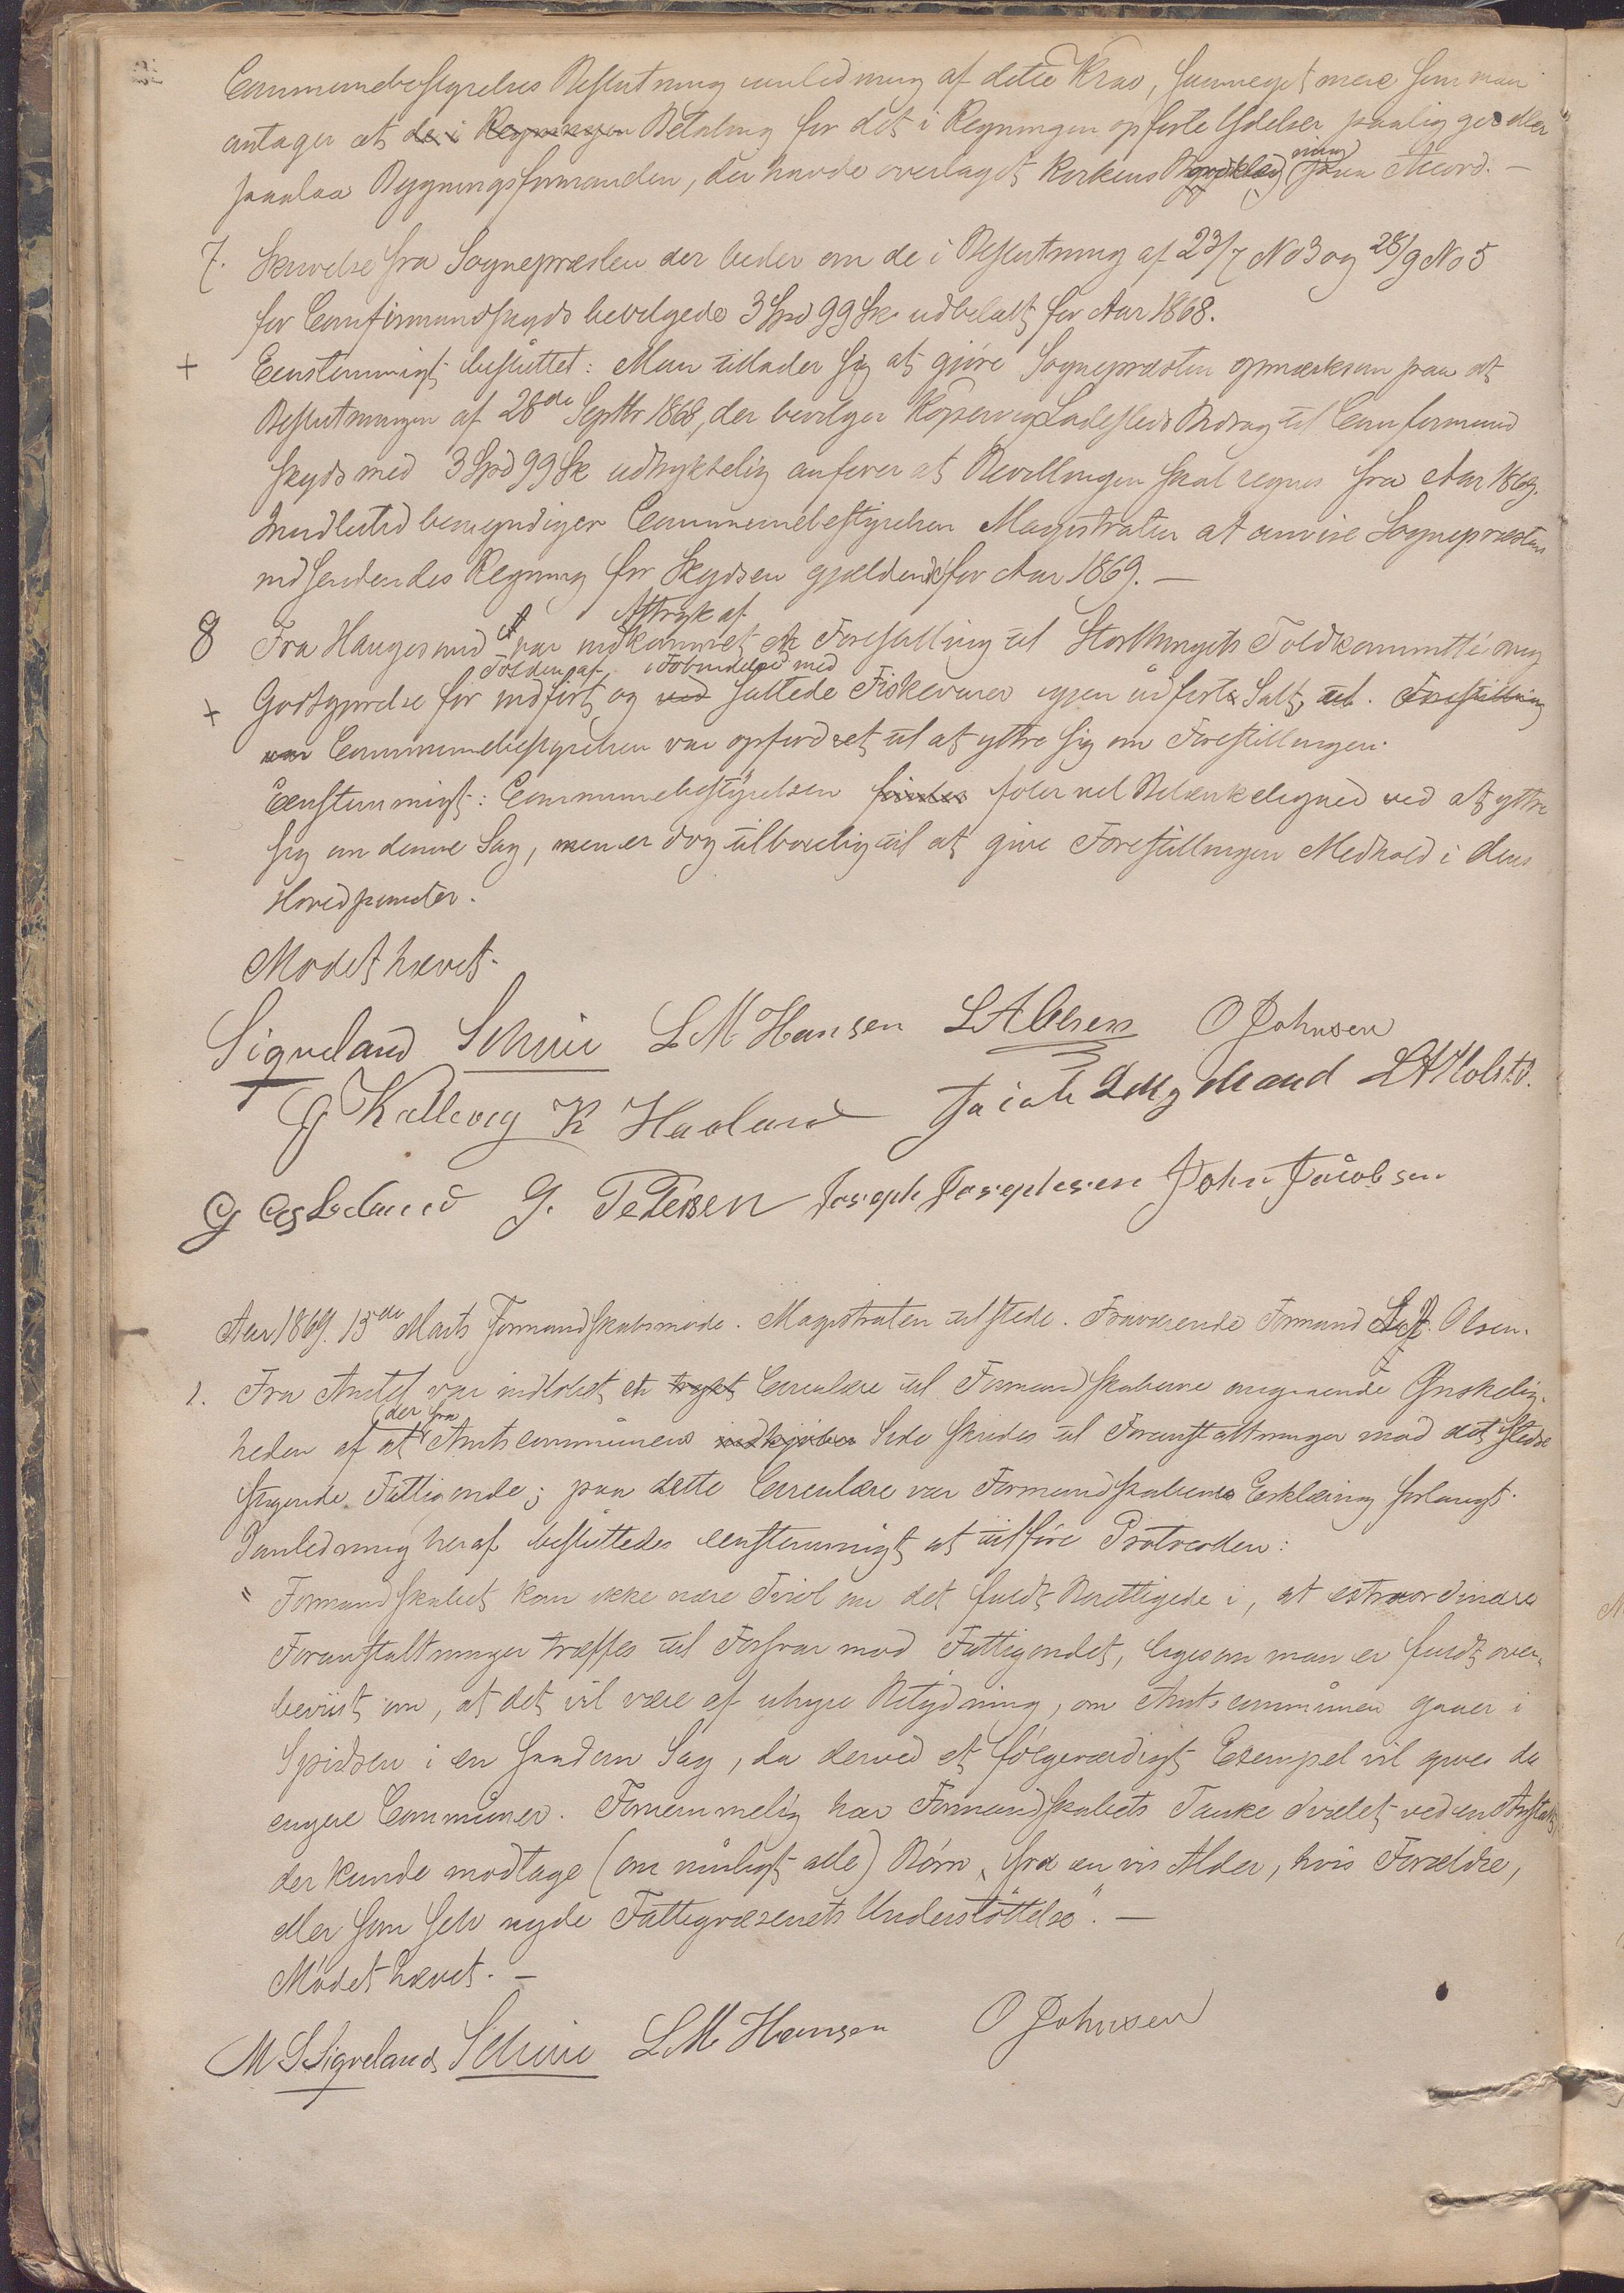 Communebestyrelsens Beslutning i anledning af dette Krav, saameget mere som man
antager at de i Regningen Betaling for det i Regningen opførte Ydelser paaligger eller
paalaa Bygningsformanden, der havde overtaget Kirkens Bygning paa Accord. —
7. Skrivelse fra Sognepræsten der beder om de i Beslutning af 23/7 No 3 og 28/9 No 5
for Confirmandskyds bevilgede 3 Spd 99 Sk udbetalt for Aar 1868.
+ Eenstemmigt besluttet: Man tillader sig at gjöre Sognepræsten opmærksom paa at
Beslutningen af 28de Septbr 1868, der bevilger Kopervig Ladesteds Bidrag til Confirmand
skyds med 3 Spd 99 Sk udtrykkelig anfører at Bevillingen skal regnes fra Aar 1869.
Imidlertid bemyndiger Communebestyrelsen Magistraten at anvise Sognepræstens
indsendendes Regning for Skydsen gjældende for Aar 1869. —
8 Fra Haugesund var indkommet et Aftryk af Forestilling til Storthingets Toldkommitté ang
+ Godtgjørelse for Tolden af indført og i Forbindelse med ved saltede Fiskevarer igjen udført Salt, til. Forestilling
var Communebestyrelsen var opfordret til at yttre sig om Forestillingen.
Eenstemmigt: Communebestyrelsen finder føler vel Betænkelighed ved at yttre
sig om denne Sag, men er dog tilbøielig til at give Forestillingen Medhold i dens
Hovedpuncter.
Mødet hævet.
Sigveland Schiøie L M Hansen L A Olsen O Johnsen
G Kallevig K Haaland Jacob Mydland
G Eg G. Petersen Joseph Josephsen John Jacobsen
Aar 1869. 15de Marts Formandskabsmøde. Magistraten tilstede. Fraværende Formand L. A. Olsen.
1. Fra Amtet var indløbet et trykt Circulære til Formandskaberne angaaende Ønskelig-
heden af at der fra Amtscommunens indkjøber Side skrides til Foranstaltninger mod det stedse
stigende Fattigonde; paa dette Circulære var Formandskabets Erklæring forlangt.
I anledning heraf besluttedes eenstemmigt at tilføre Protocollen:
" Formandskabet kan ikke nære Tvivl om det fuldt Berettigede i, at extraordinære
Foranstaltninger træffes til Forsvar mod Fattigondet, ligesom man er fuldt over-
beviist om, at det vil være af uhyre Betydning, om Amtscommünen gaaer i
Spidsen i en saadan Sag, da derved et følgeværdigt Exempel vil gives de
engere Communer. Fornemmelig har Formandskabets Tanke dvælet ved en Anstalt,
der kunde modtage (om muligt alle) Børn, fra en vis Alder, hvis Forældre,
eller som selv nyde Fattigvæsenets Understöttelse". —
Mödet hævet. —
M S Sigveland Schiøie L M Hansen O Johnsen